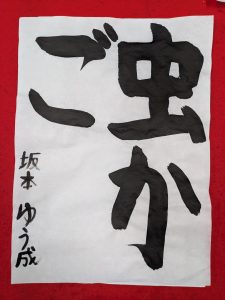 虫か
ご
坂本ゆう成